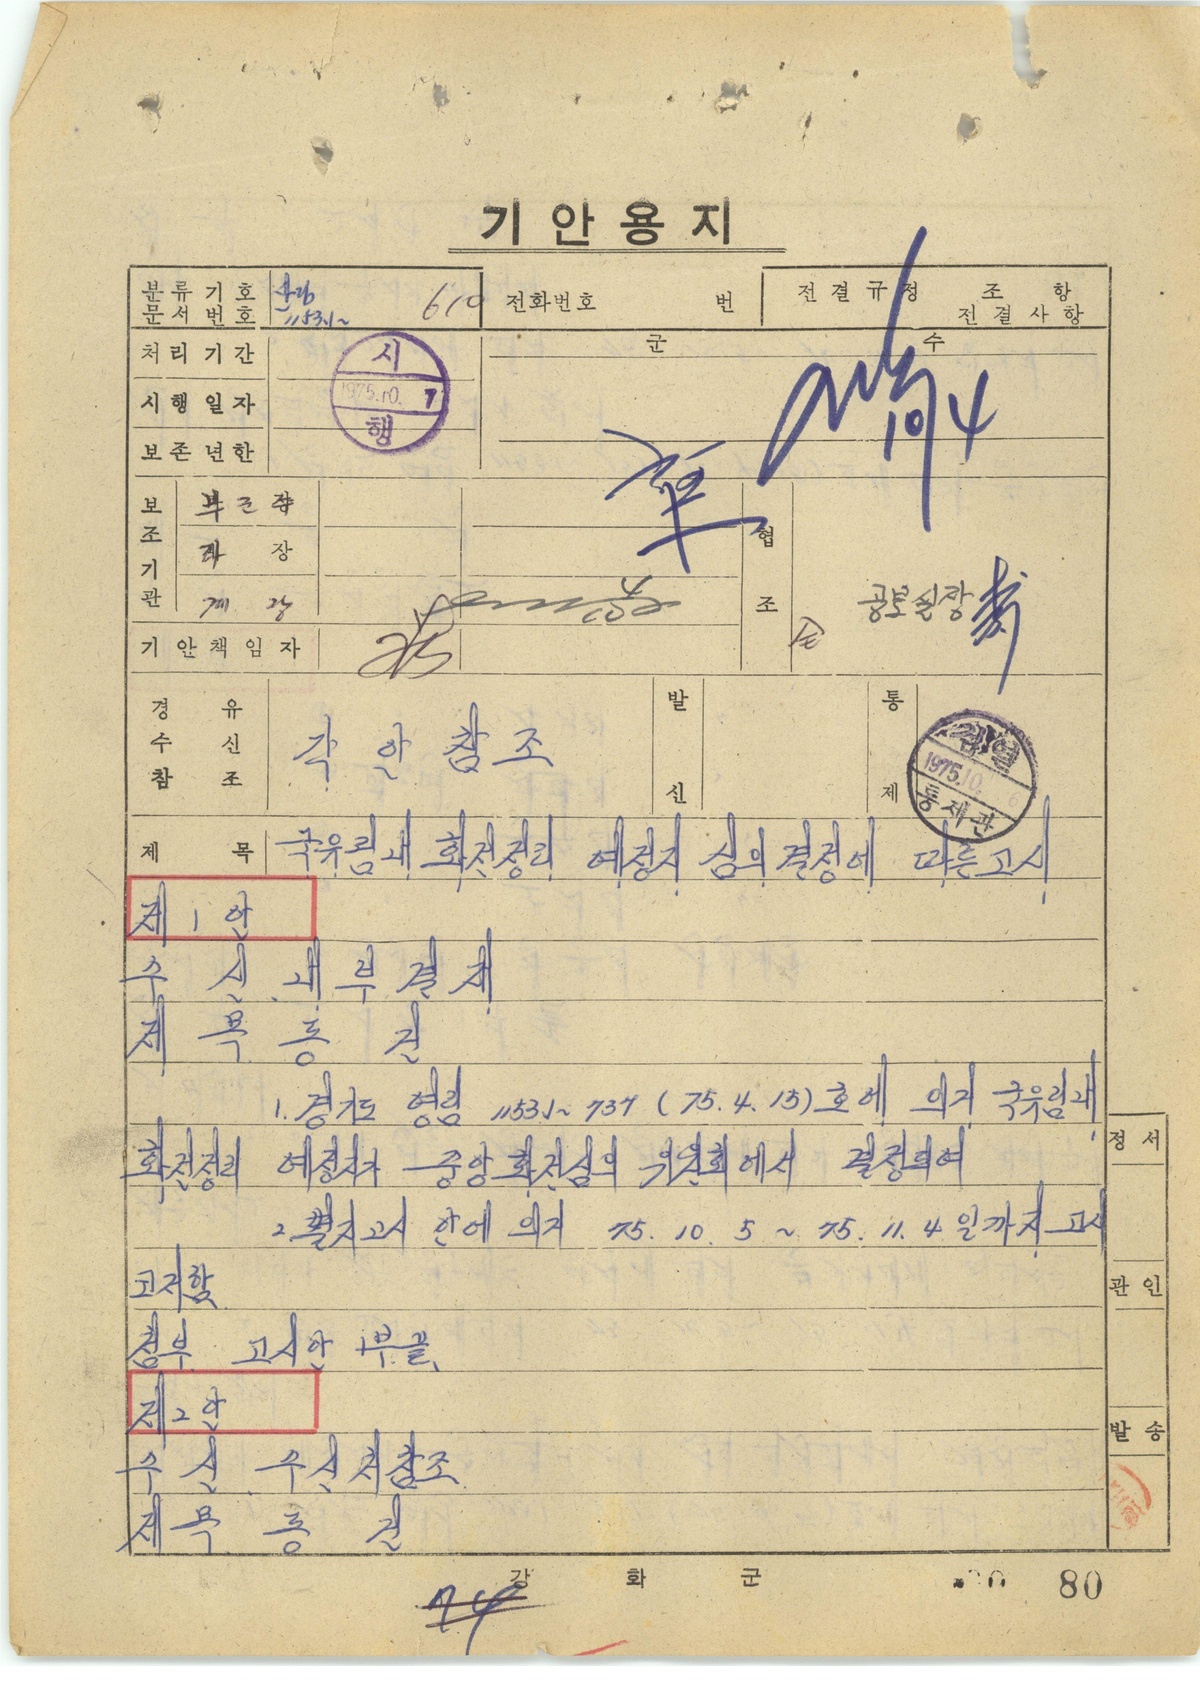 기 안 용 지
분류기호
문서번호
산림
11531~ 610
전화번호 번
전결규정 조 항
전결사항
처리기간
시행일자
보존년한
시
1975.10. 7
행
군 수
10/4
보조기관
부군수
과 장
계 장
기안책임자
협조
공보실장
경 유
수 신
참 조
각 안 참조
발신
통제
검열
1975.10. 6
통제관
제 목 국유림내 화전정리 예정지 심의결정에 따른고시
제 1 안
수 신 내부결재
제 목 동 건
1. 경기도 영림 11531~737 (75.4.15)호에 의거 국유림내
화전정리 예정지가 중앙화전심의 위원회에서 결정되여
2. 별지고시 안에 의거 75. 10. 5 ~ 75. 11. 4 일까지 고시
코저함
첨부 고시안 1부 끝.
제 2 안
수 신 수신처참조
제 목 동 건
정서
관인
발송
강 화 군
74
80